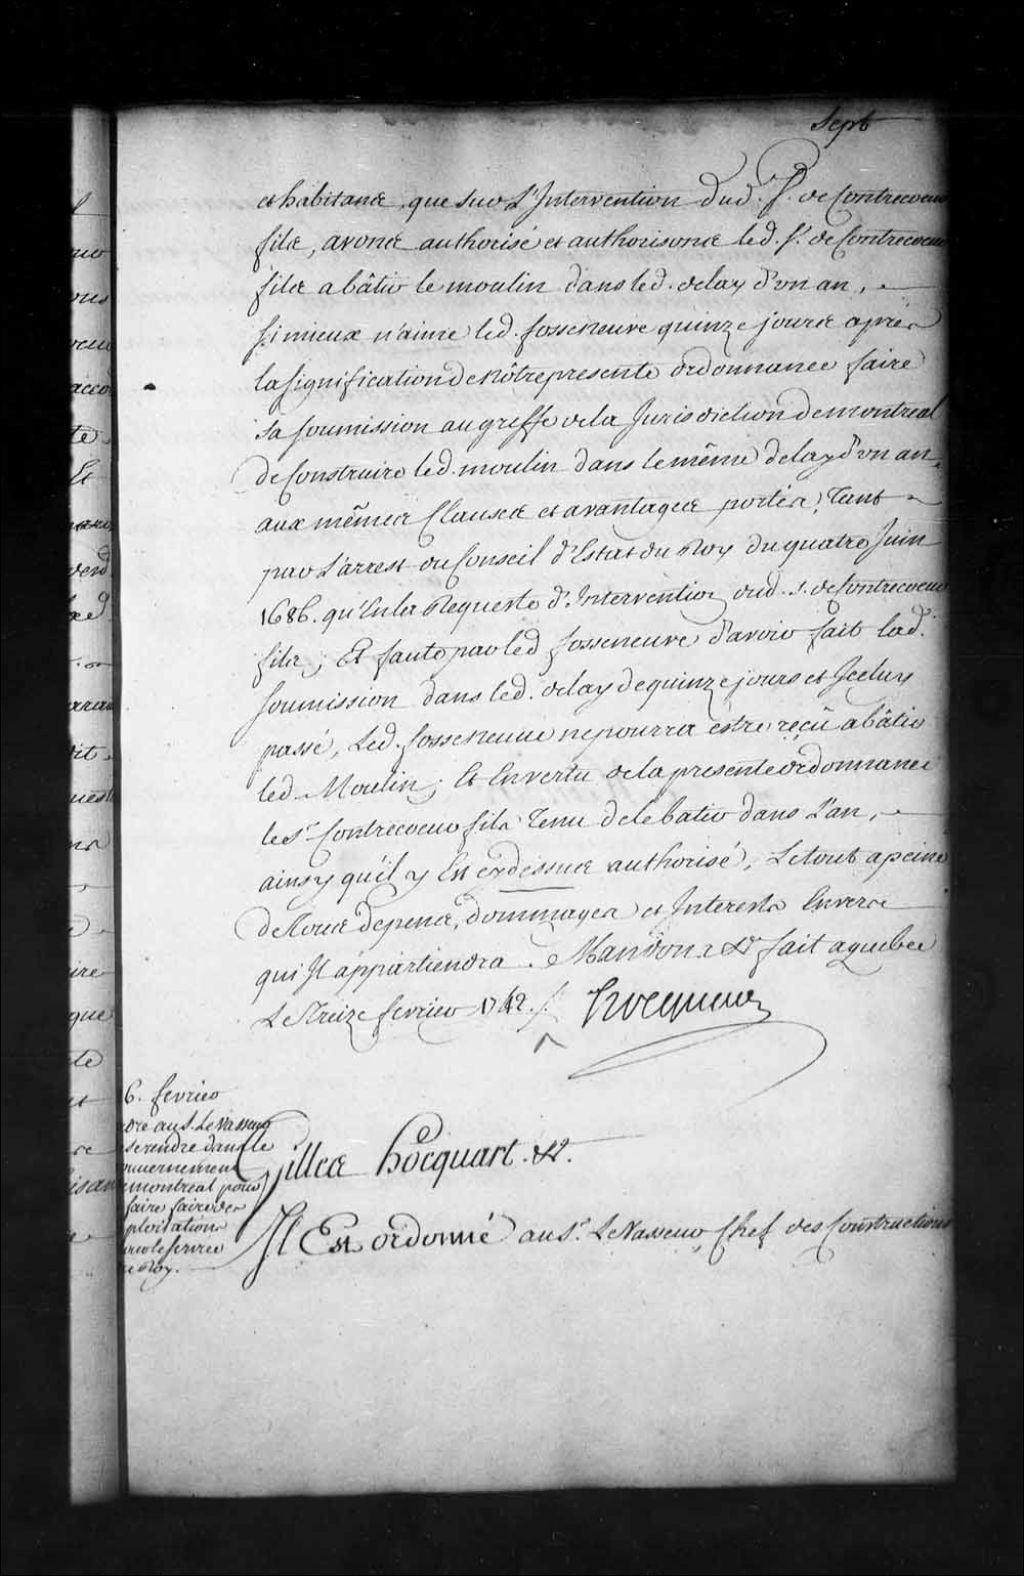 Sept
et habitans, que sur L'Intervention dud. S. de Contrecoeur
fils, avons authorisé et authorisons led. Sr. de Contrecoeur
fils a bâtir le moulin dans led. delay d'un an,
Si mieux n'aime led. fosseneuve quinze jours après
la signification de nôtre presente ordonnance faire
sa soumission au greffe de la Jurisdiction de montreal
de Construire led. moulin dans le même delay d'un an
aux mêmes Clauses et avantages portés, Tant
par L'arrest du Conseil d'Estat du Roy du quatre Juin
1686. qu'En la Requeste d'Intervention dud. S. de Contrecoeur
fils; Et faute par led fosseneuve d'avoir fait lad.
soumission dans led. delay de quinze jours et Iceluy
passé, Led. fosseneuve ne pourra estre reçû a bâtir
led. Moulin; Et En vertu de la presente ordonnance
le Sr. Contrecoeur fils Tenu de le batir dans L'an,
ainsy qu'il y Est cydessus authorisé, Le tout a peine
de tous depens, dommages et Interests Envers
qui Il appartiendra. Mandons &a. fait a quebec
Le Treize fevrier 1742. /. Hocquart
6. fevrier
dre au S. Le Vasseur
se rendre dans le
ouvernement
montreal pour
faire faire des
ploitations
our le service
Roy.
Gilles hocquart. &a.
Il Est ordonné au Sr. Le Vasseur Chef des Constructions